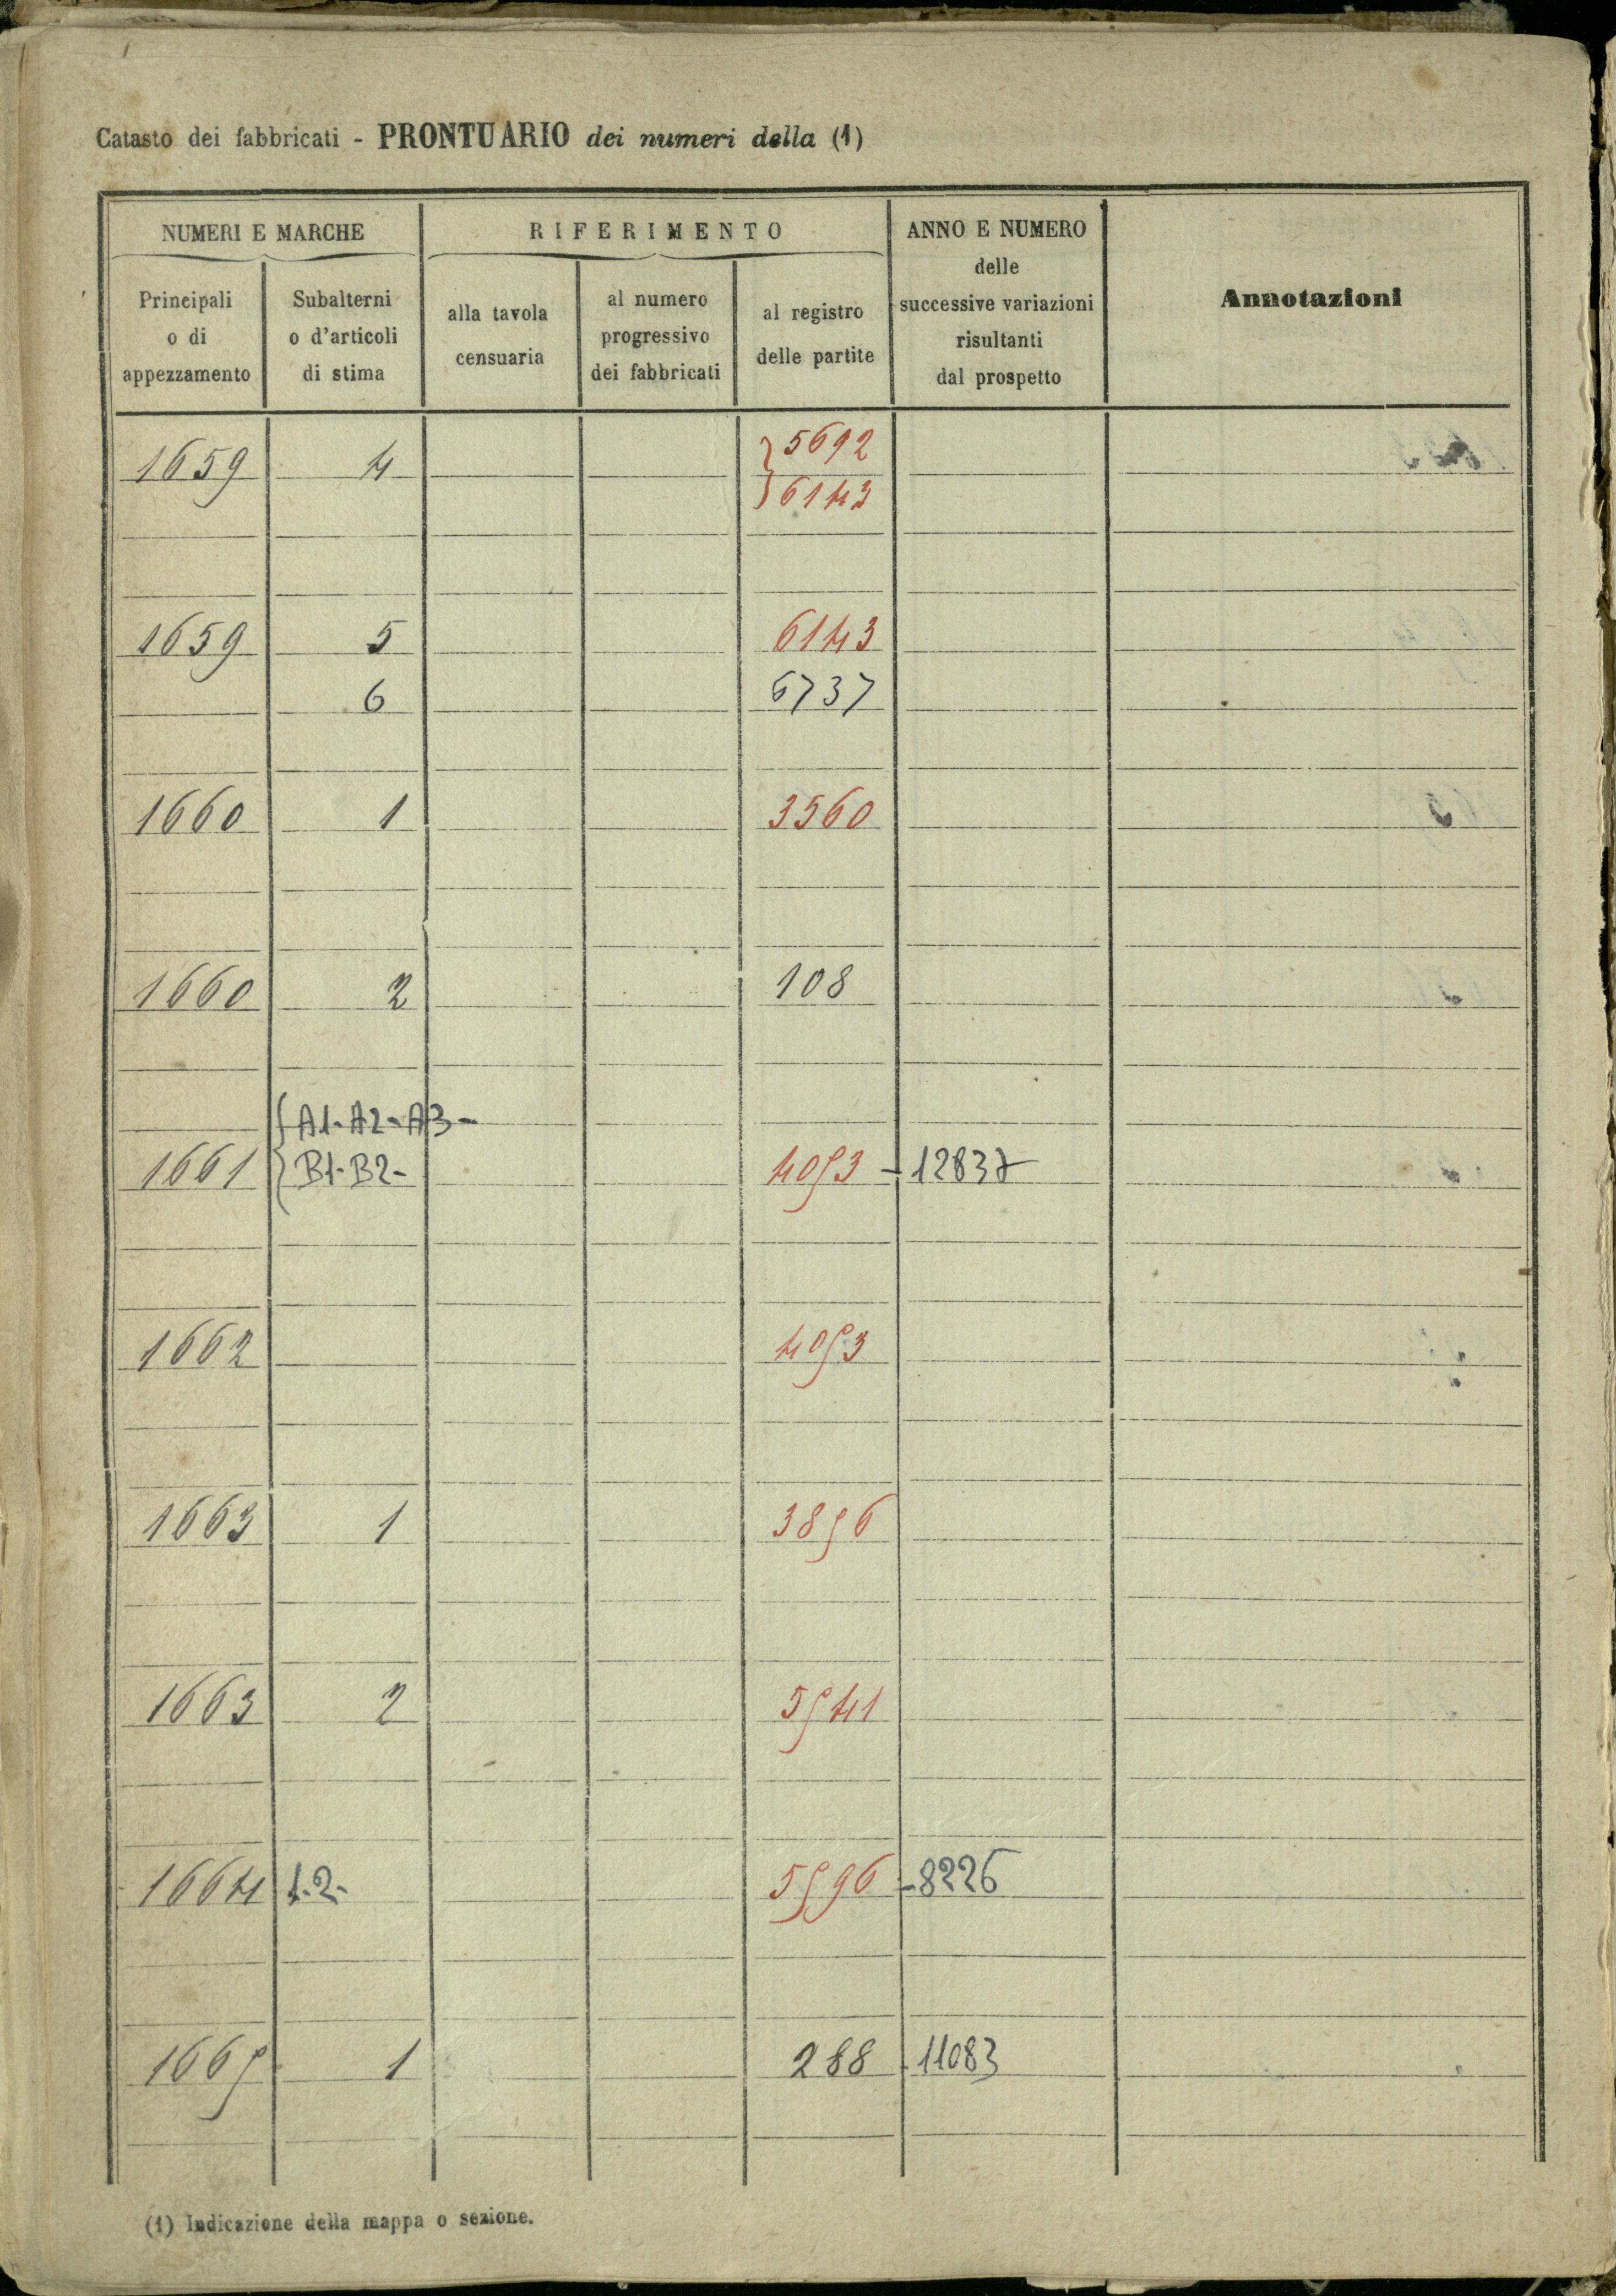 Catasto dei fabbricati - PRONTUARIO dei numeri della (1)
NUMERI E MARCHE RIFERIMENTO ANNO E NUMERO delle successive variazioni risultanti dal prospetto Annotazioni
Principali o di appezzamento Subalterni o d'articoli di stima alla tavola censuaria al numero progressivo dei fabbricati al registro delle partite
1659 4 } 5692
} 6143
1659 5 6143
6 6737
1660 1 3560
1660 2 108
{ A1-A2-A3-
1661 } B1-B2- 4053 - 12837
1662 4053
1663 1 3856
1663 2 5541
1664 1-2- 5596 - 8226
1665 1 288 - 11083
(1) Indicazione della mappa o sezione.